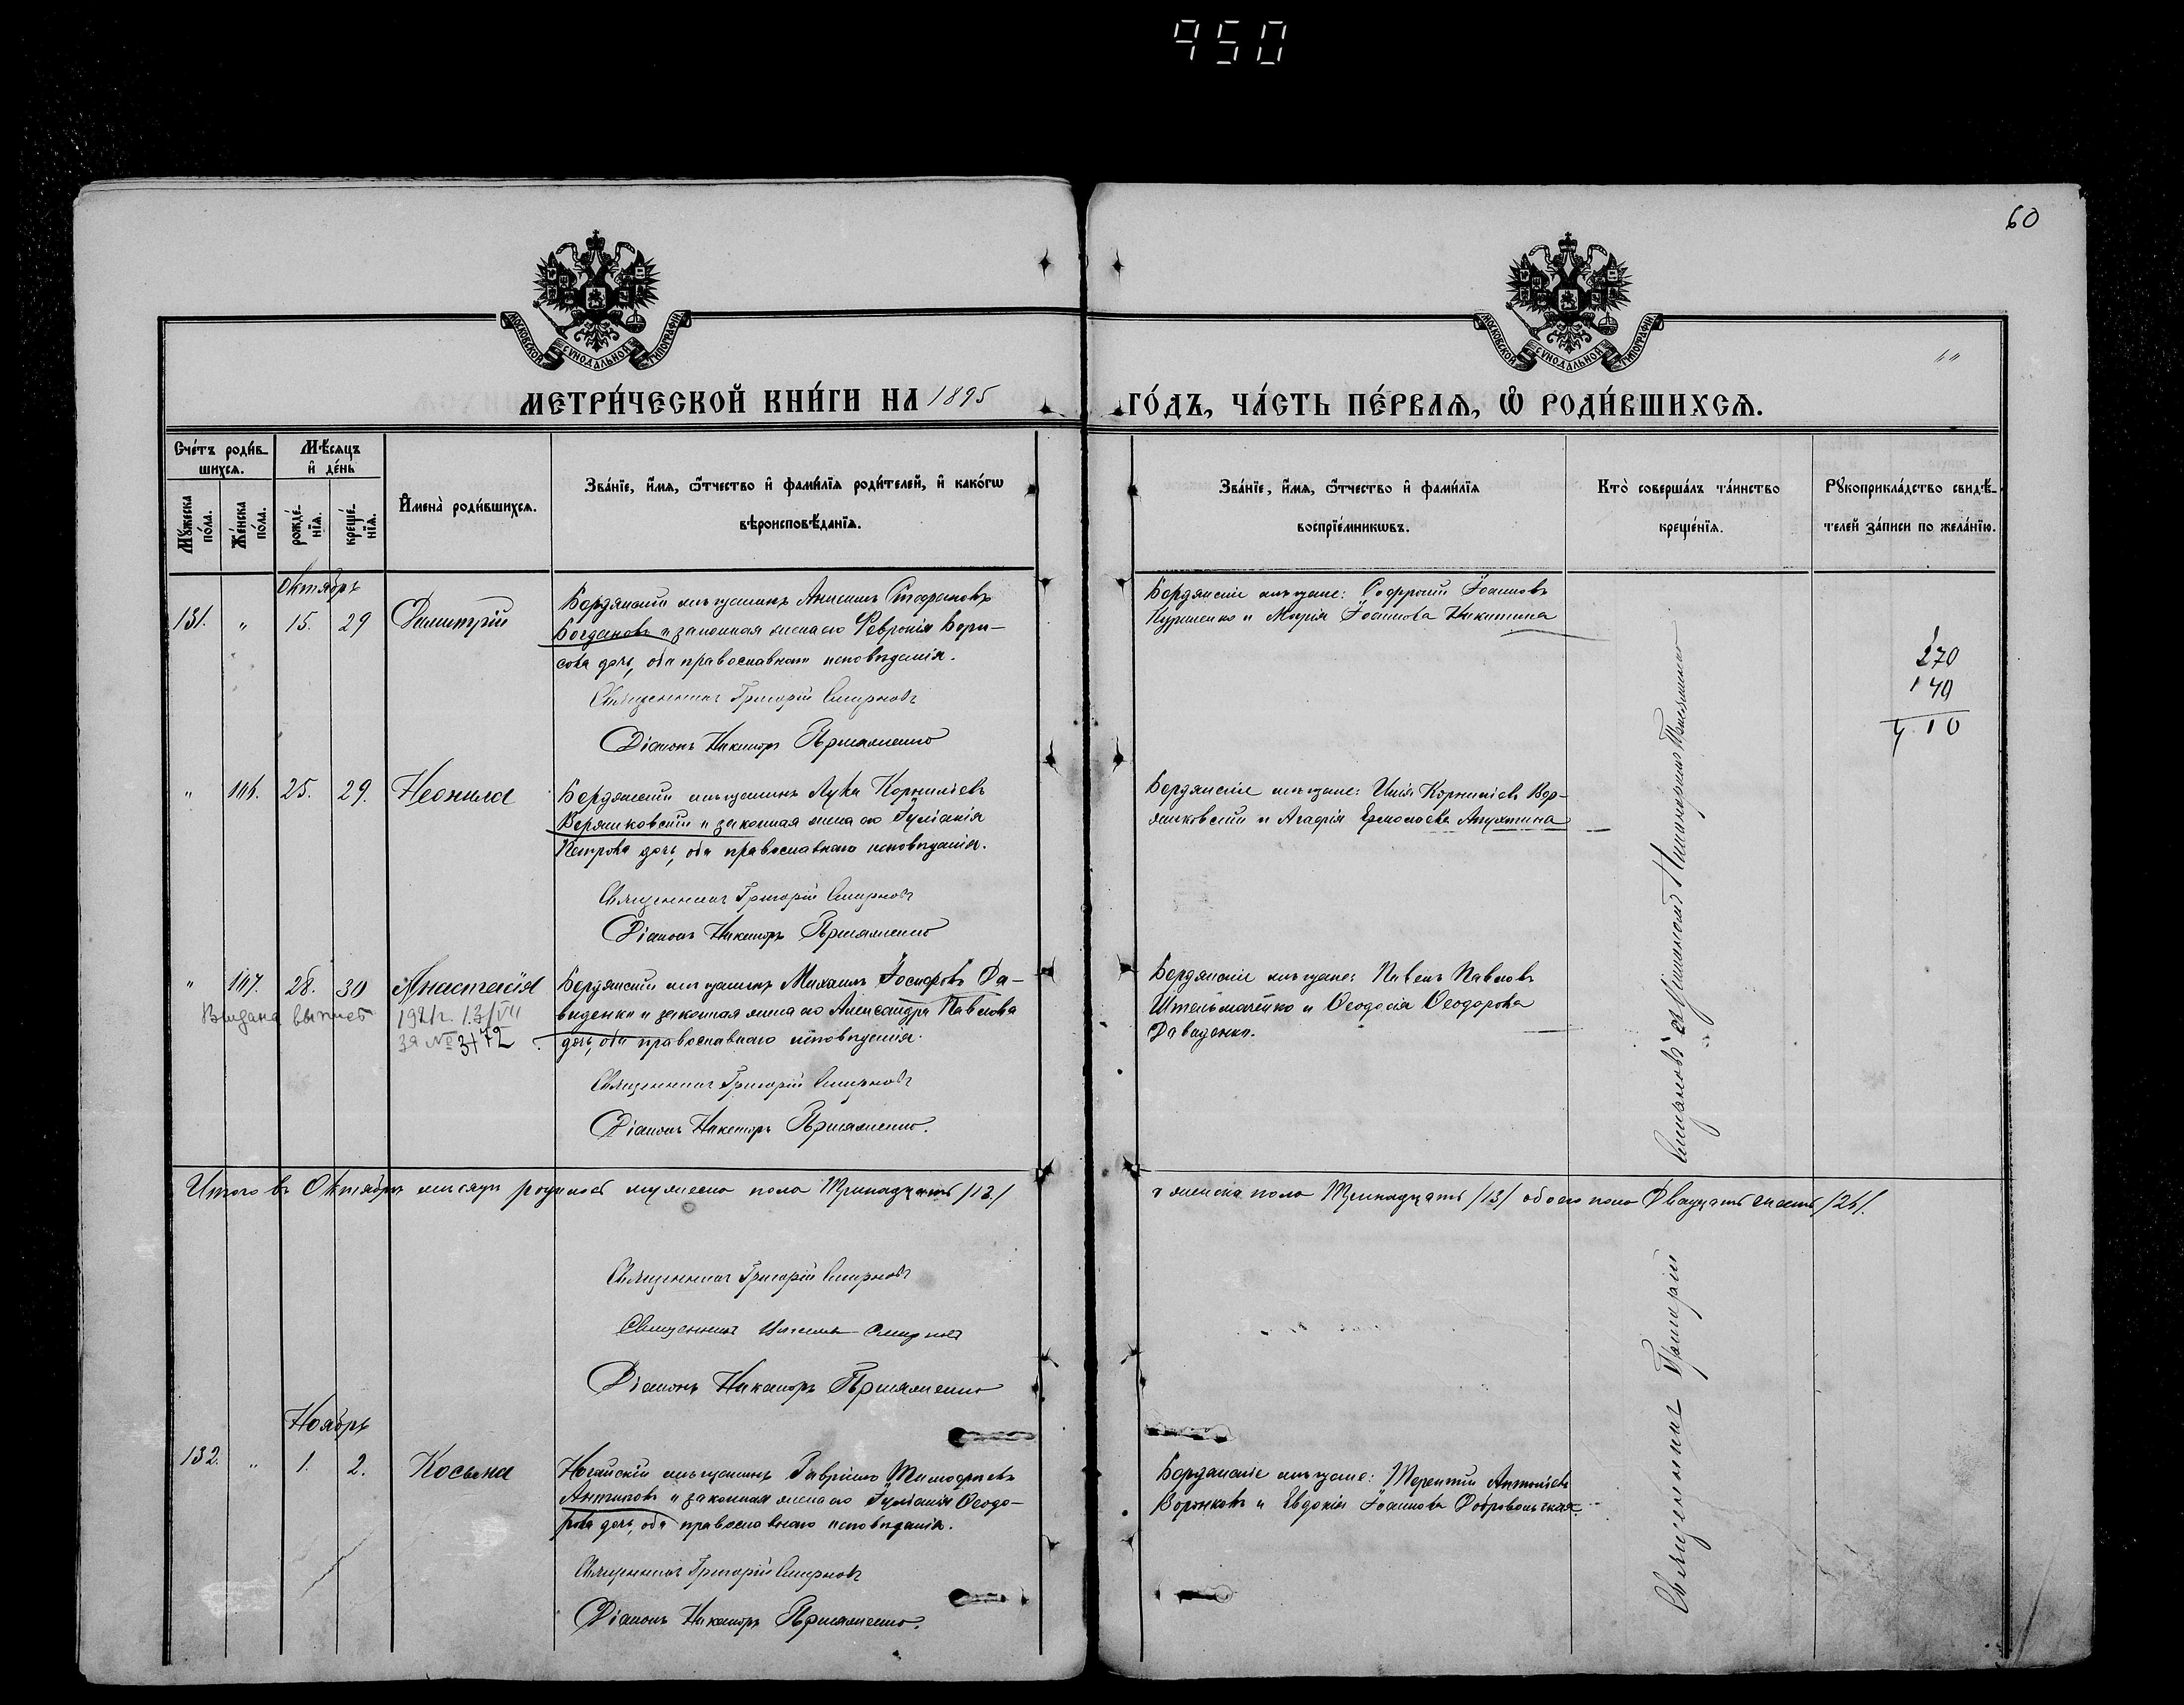 950
60
МОСКОВСКОЙ СѴНОДАЛЬНОЙ ТИПОГРАФІИ
МОСКОВСКОЙ СѴНОДАЛЬНОЙ ТИПОГРАФІИ
МЕТРИ́ЧЕСКОЙ КНИ́ГИ НА 1895 ГО́ДЪ, ЧА́СТЬ ПЕ́РВАѦ, Ѡ҆ РОДИ́ВШИХСѦ.
Сче́тъ роди́в-
шихсѧ.
Мѣ́сѧцъ
и҆ де́нь
Мꙋ́жеска
по́ла.
Же́нска
по́ла.
рожде́-
нїѧ.
креще́-
нїѧ.
И҆мена̀ роди́вшихсѧ.
Зва́нїе, и҆́мѧ, ѻ҆́тчество и҆ фами́лїѧ роди́телей, и҆ како́гѡ
вѣроисповѣ́данїѧ.
Зва́нїе, и҆́мѧ, ѻ҆́тчество и҆ фами́лїѧ
воспрїе́мникѡвъ.
Кто̀ соверша́лъ та́инство
креще́нїѧ.
Рꙋкоприкла́дство свидѣ́-
телей за́писи по жела́нїю.
Октябрь
131. " 15. 29 Димитрій
Бердянскій мѣщанинъ Анисимъ Стефановъ
Богдановъ и законная жена его Феврокія Бори-
сова дочь, оба православнаго исповѣданія.
Священникъ Григорій Смирновъ
Діаконъ Никаноръ
Бердянскіе мѣщане: Софроній Іоанновъ
и Марія Іоаннова Никитина
270
140
410
" 116. 25. 29. Неонила
Бердянскій мѣщанинъ Лука Корниліевъ
и законная жена его Іуліанія
Петрова дочь, оба православнаго исповѣданія.
Священникъ Григорій Смирновъ
Діаконъ Никаноръ
Бердянскіе мѣщане: Илія Корниліевъ Вер-
и Агафія Ермолаева
" 117. 28. 30 Анастасія
Выдана выпись 1921г. 13/VII
за № 3172
Бердянскій мѣщанинъ Михаилъ Іосифовъ Да-
виденко и законная жена его Александра Павлова
дочь, оба православнаго исповѣданія.
Священникъ Григорій Смирновъ
Діаконъ Никаноръ
Бердянскіе мѣщане: Павелъ Павловъ
Штельмаченко и Ѳеодосія Ѳеодорова
Давиденко.
Итого въ Октябрѣ мѣсяцѣ родилось мужеска пола Тринадцать /13/ и женска пола Тринадцать /13/ обоего пола Двадцать шесть /26/.
Священникъ Григорій Смирновъ
Священникъ Смирновъ
Діаконъ Никаноръ
Ноябрь
132. " 1. 2. Косьма
Ногайскій мѣщанинъ Гавріилъ Тимофеевъ
Антиповъ и законная жена его Іуліанія Ѳеодо-
рова дочь, оба православнаго исповѣданія.
Священникъ Григорій Смирновъ
Діаконъ Никаноръ
Бердянскіе мѣщане: Терентій Антоніевъ
Воронковъ и Евдокія Іоаннова Добровольская.
Священникъ Григорій Смирновъ съ Діакономъ Никаноромъ